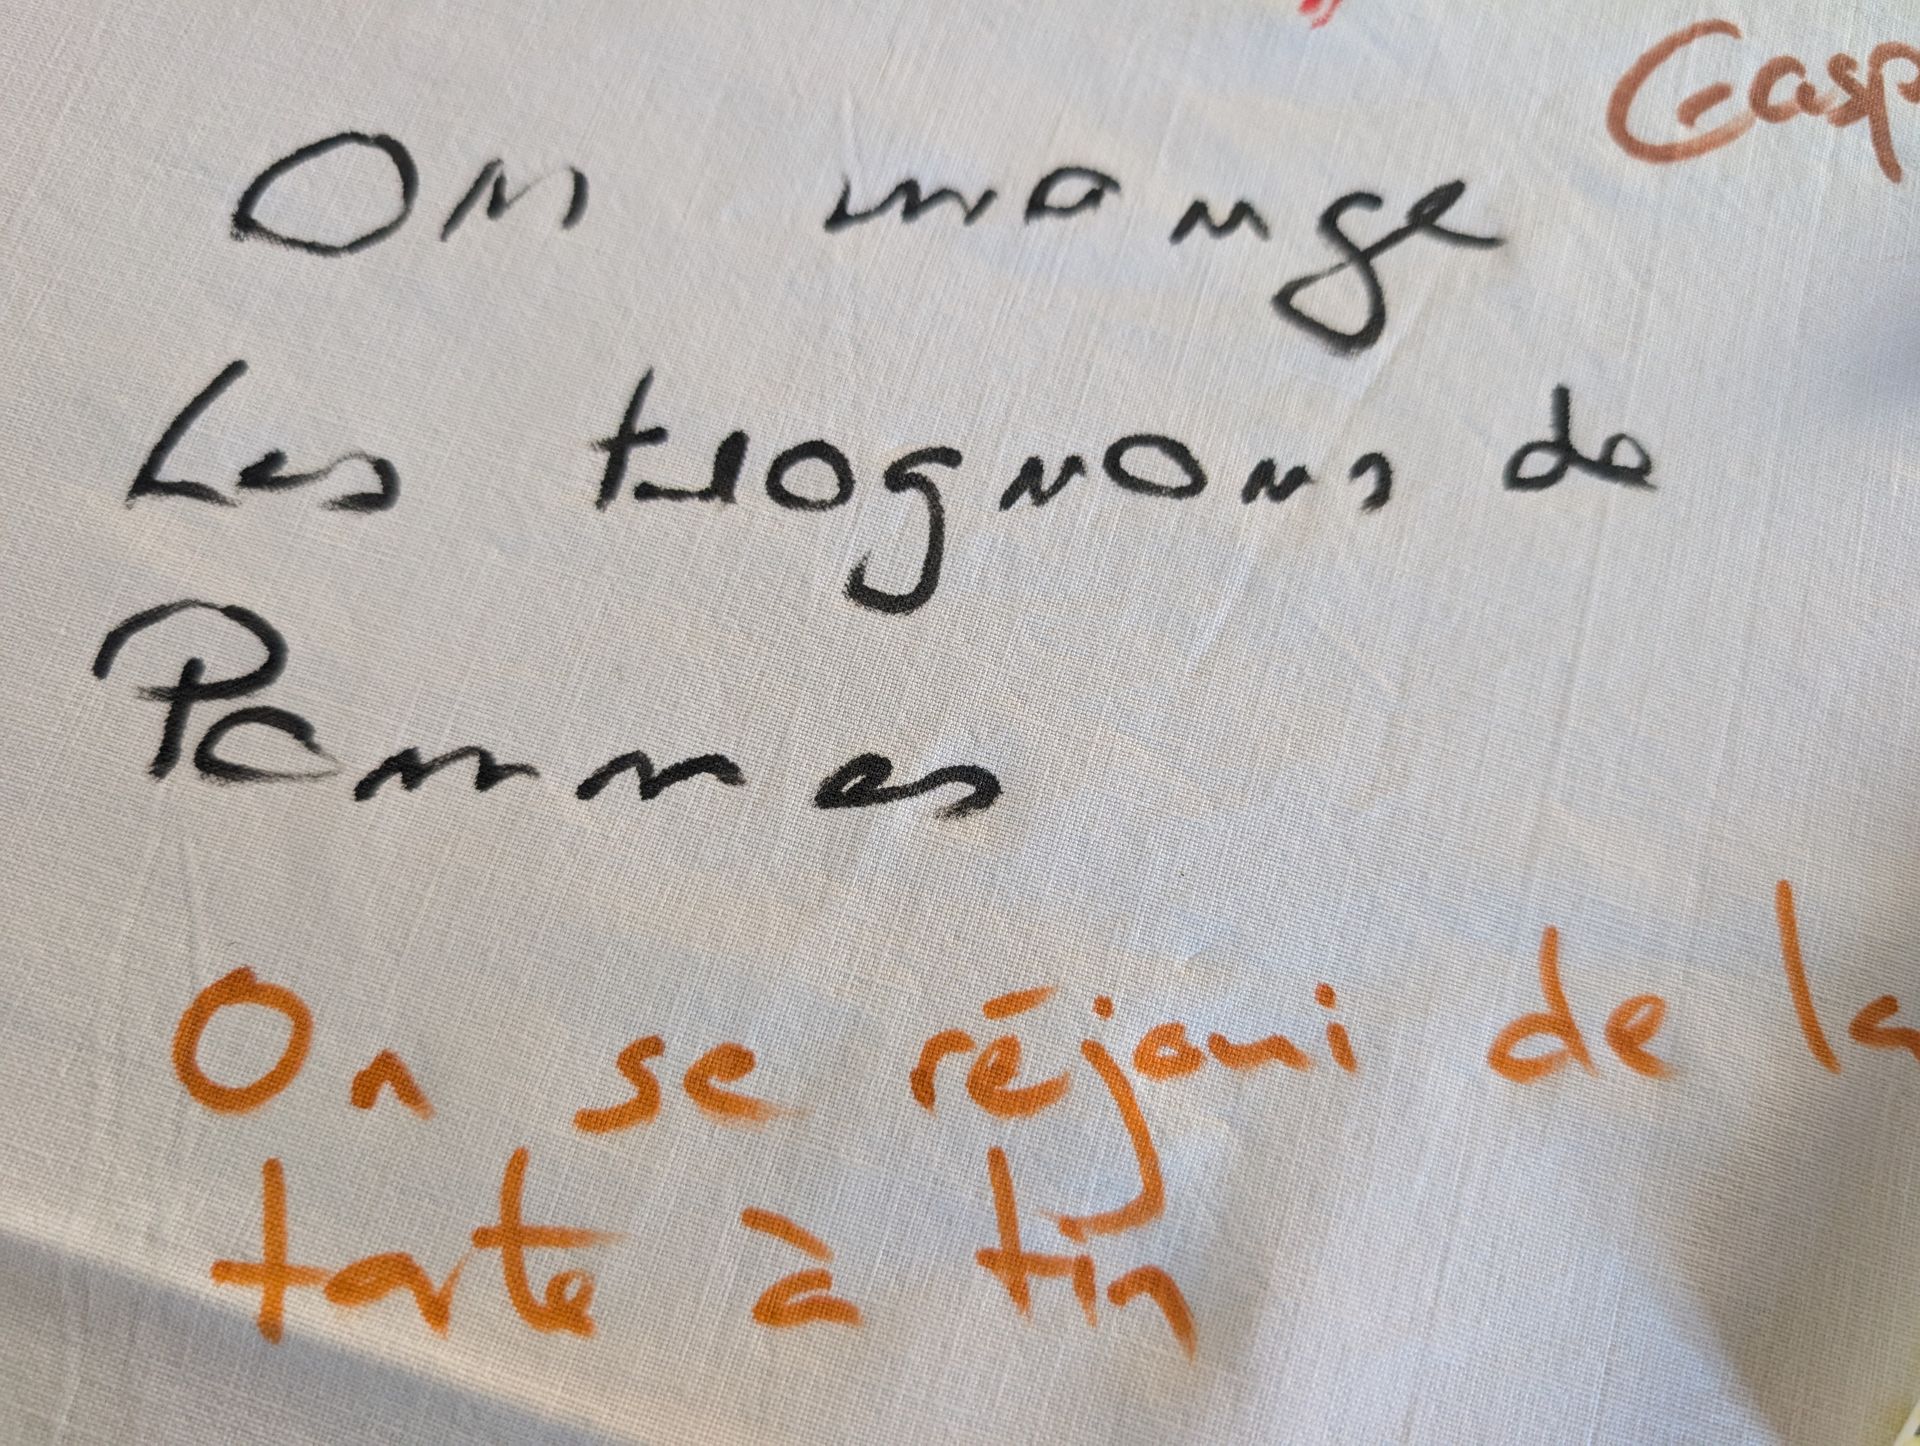 Gasp
On mange
Les trognons de
Pommes
On se réjoui de la
tarte à tin